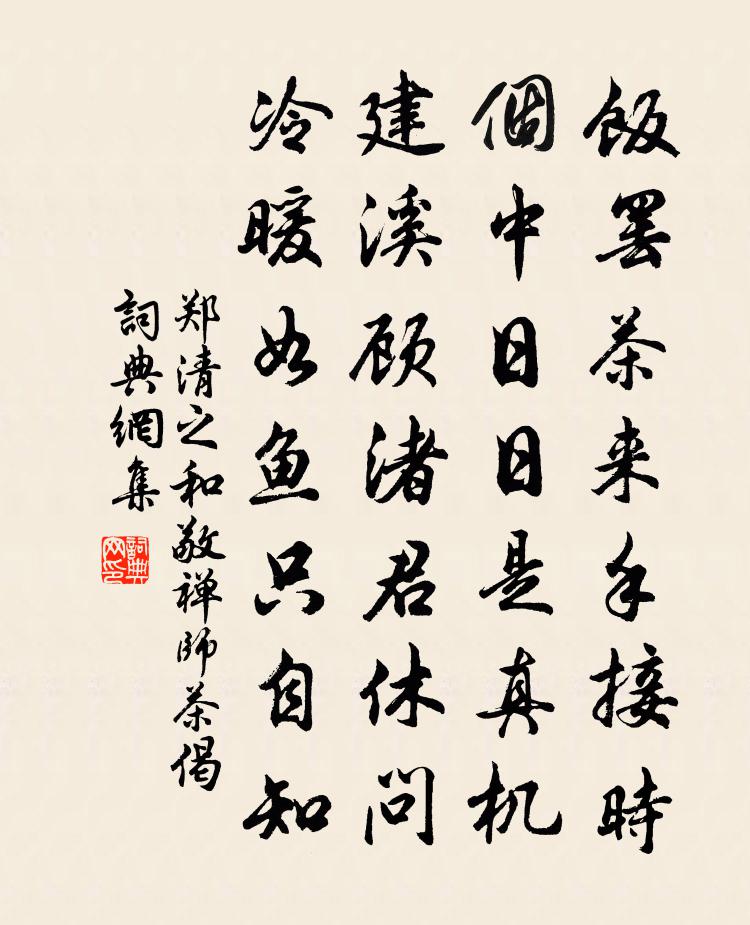 飯罢茶来手接時
個中日日是真机
建溪顾渚君休问
冷暖如鱼只自知
郑清之和敬禅师茶偈
詞典網集
詞典网印